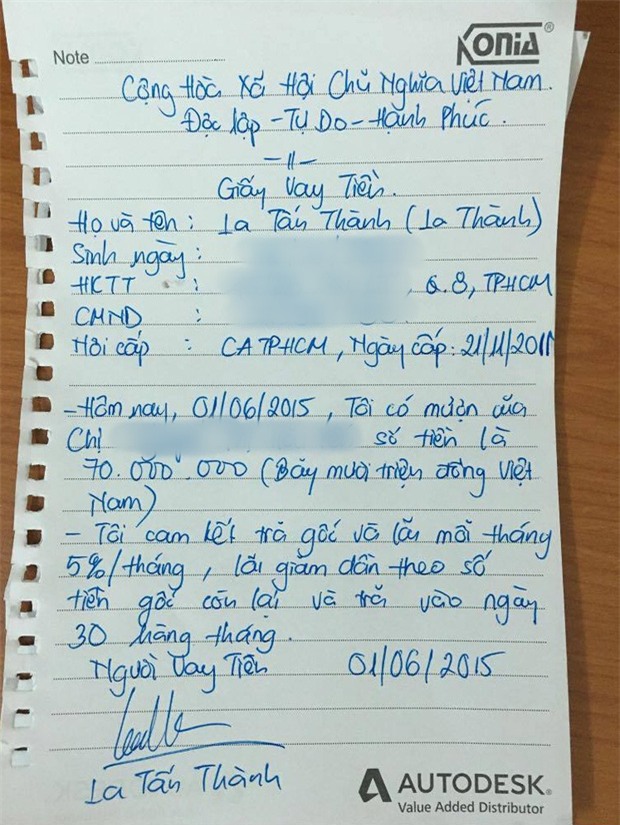 Note
KONIA®
Cộng Hòa Xã Hội Chủ Nghĩa Việt Nam.
Độc lập - Tự Do - Hạnh Phúc.
-//-
Giấy Vay Tiền.
Họ và tên : La Tấn Thành (La Thành)
Sinh ngày :
HKTT : , Q.8, TPHCM
CMND :
Nơi cấp : CA TPHCM, Ngày cấp: 21/11/2011
- Hôm nay, 01/06/2015, Tôi có mượn của
Chị số tiền là
70.000.000 (Bảy mươi triệu đồng Việt
Nam)
- Tôi cam kết trả gốc và lãi mỗi tháng
5%/tháng, lãi giảm dần theo số
tiền gốc còn lại và trả vào ngày
30 hàng tháng.
Người Vay Tiền 01/06/2015
La Tấn Thành
AUTODESK.
Value Added Distributor